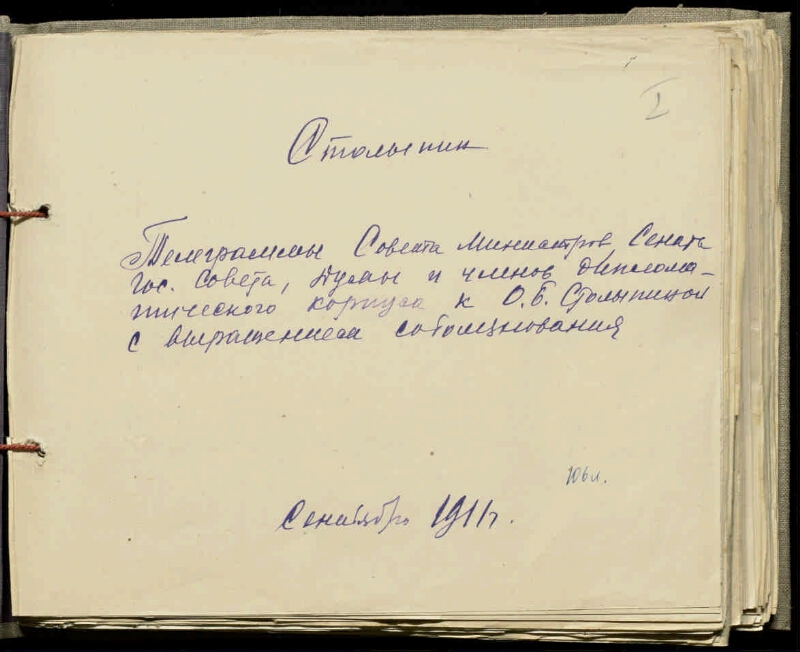 I
Столыпин
Телеграммы Совета Министров, Сената
Гос. Совета, Думы и членов диплома-
тического корпуса к О.Б. Столыпиной
с выражением соболезнования
106 л.
Сентябрь 1911 г.